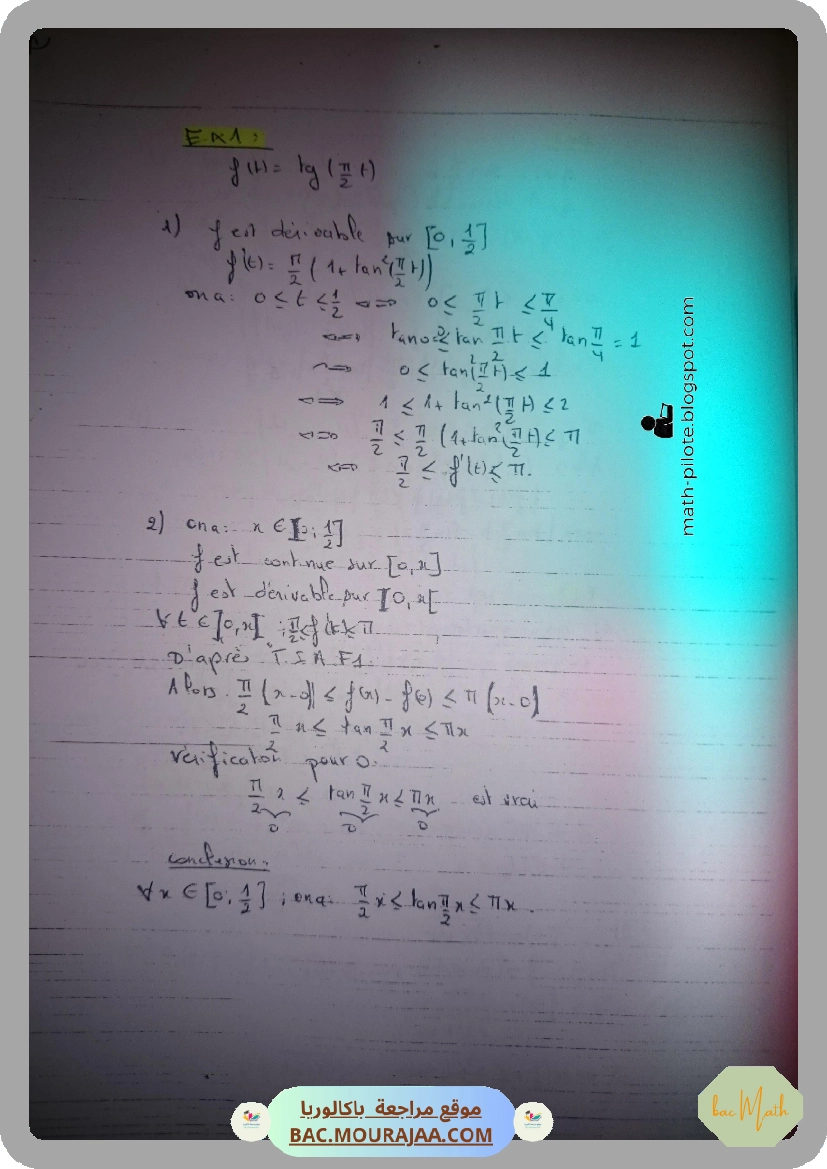 Ex1:
f(t) = tg(π/2 t)
1) f est dérivable sur [0, 1/2]
f'(t) = π/2 (1 + tan²(π/2 t))
ona: 0 ≤ t ≤ 1/2 <=> 0 ≤ π/2 t ≤ π/4
<=> tan0 ≤ tan π/2 t ≤ tan π/4 = 1
=> 0 ≤ tan²(π/2 t) ≤ 1
<=> 1 ≤ 1 + tan²(π/2 t) ≤ 2
<=> π/2 ≤ π/2 (1 + tan²(π/2 t) ≤ π
<=> π/2 ≤ f'(t) ≤ π.
math-pilote.blogspot.com
2) ona: x ∈ ]0; 1/2]
f est continue sur [0,x]
f est dérivable sur ]0,x[
∀ t ∈ ]0,x[ ; π/2 ≤ f'(t) ≤ π
D'après T.I.A.F1.
Alors. π/2 (x-0) ≤ f(x) - f(0) ≤ π (x-0)
π/2 x ≤ tan π/2 x ≤ πx
Vérification pour 0.
π/2 x ≤ tan π/2 x ≤ πx est vrai
0 0 0
conclusion:
∀x ∈ [0; 1/2] ; ona: π/2 x ≤ tan π/2 x ≤ πx.
موقع مراجعة باكالوريا
BAC.MOURAJAA.COM
bac Math